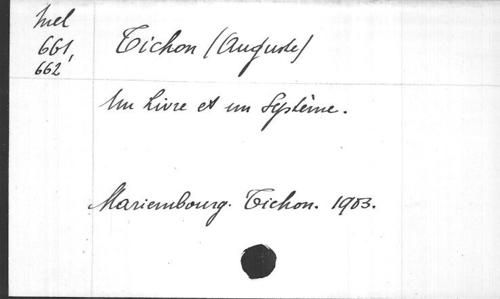 Mel
661,
662
Tichon (Auguste)
Un Livre et un Système.
Mariembourg. Tichon. 1903.